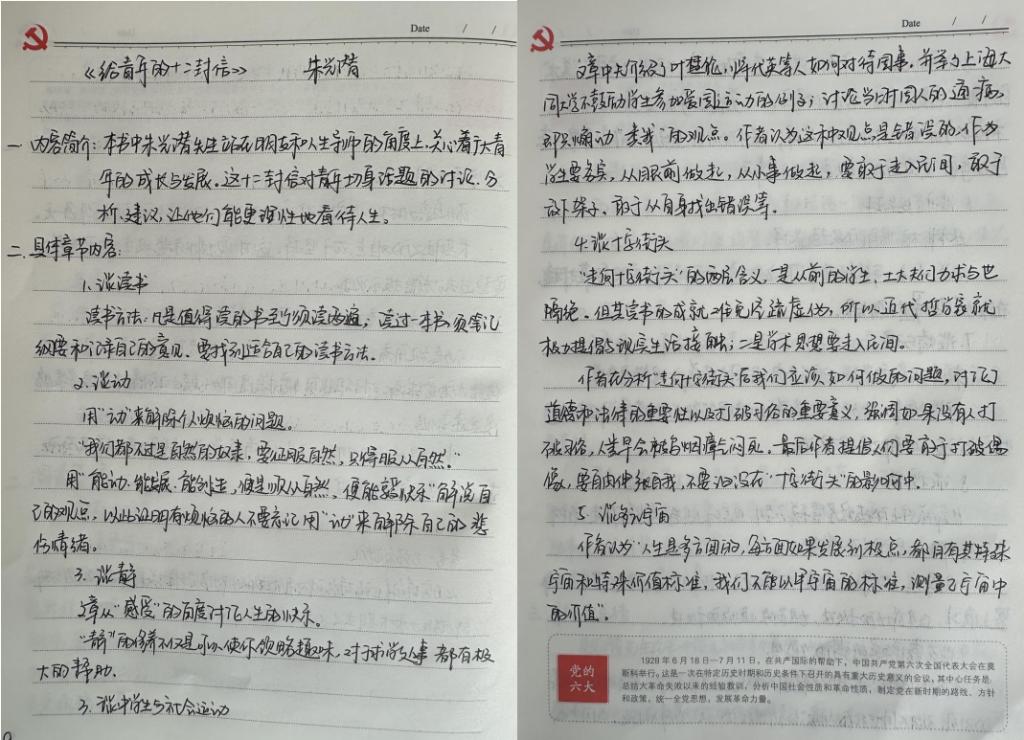 Date / /
《给青年的十二封信》 朱光潜
一 内容简介:本书中朱光潜先生站在朋友和人生导师的角度上,关心着广大青
年的成长与发展。这十二封信对青年切身话题的讨论、分
析、建议,让他们能更理性地看待人生。
二、具体章节内容:
1.谈读书
读书方法:凡是值得读的书至少须读两遍;读过一本书,须笔记
纲要和记录自己的意见。要找到适合自己的读书方法。
2.谈动
用“动”来解除个人烦恼的问题。
“我们都不过是自然的奴隶,要征服自然,只得服从自然。”
用“能动、能发展、能创造,便是顺从自然,便能享快乐”解说自
己的观点,以此证明有烦恼的人不要忘记用“动”来解除自己的悲
伤情绪。
3.谈静
文章从“感受”的角度讨论人生的快乐。
“静”的修养不仅是可以使你领略趣味,对于求学处事都有极
大的帮助。
3.谈中学生与社会运动
Date / /
文章中先介绍了叶楚伧,悼代英等人如何对待国事,并举了上海大
同大学不鼓励学生参加爱国运动的例子;讨论当时国人的通病,
即只煽动“群众”的观点。作者认为这种观点是错误的,作为
学生要务实,从眼前做起,从小事做起,要敢于走入民间,敢于
放下架子、敢于从自身找出错误等。
4.谈十字街头
“走向十字街头”的两层含义,一是从前的学生、士大夫们力求与世
隔绝。但其读书的成就难免空疏虚伪,所以近代哲学家就
极力提倡与现实生活接触;二是学术思想要走入民间。
作者在分析“走向十字街头”后我们应该如何做的问题,讨论了
道德和法律的重要性以及打破习俗的重要意义。强调如果没有人打
破习俗,人类早会被乌烟瘴气闷死。最后作者提倡人们要敢于打破偶
像,要自由伸张自我,不要汩没在“十字街头”的影响中。
5.谈多元宇宙
作者认为“人生是多方面的,每方面如果发展到极点,都自有其特殊
宇宙和特殊价值标准,我们不能以甲宇宙的标准,测量乙宇宙中
的价值”。
党的
六大
1928年6月18日—7月11日,在共产国际的帮助下,中国共产党第六次全国代表大会在莫
斯科举行。这是一次在特定历史时期和历史条件下召开的具有重大历史意义的会议,其中心任务是:
总结大革命失败以来的经验教训,分析中国社会性质和革命性质,制定党在新时期的路线、方针
和政策,统一全党思想,发展革命力量。